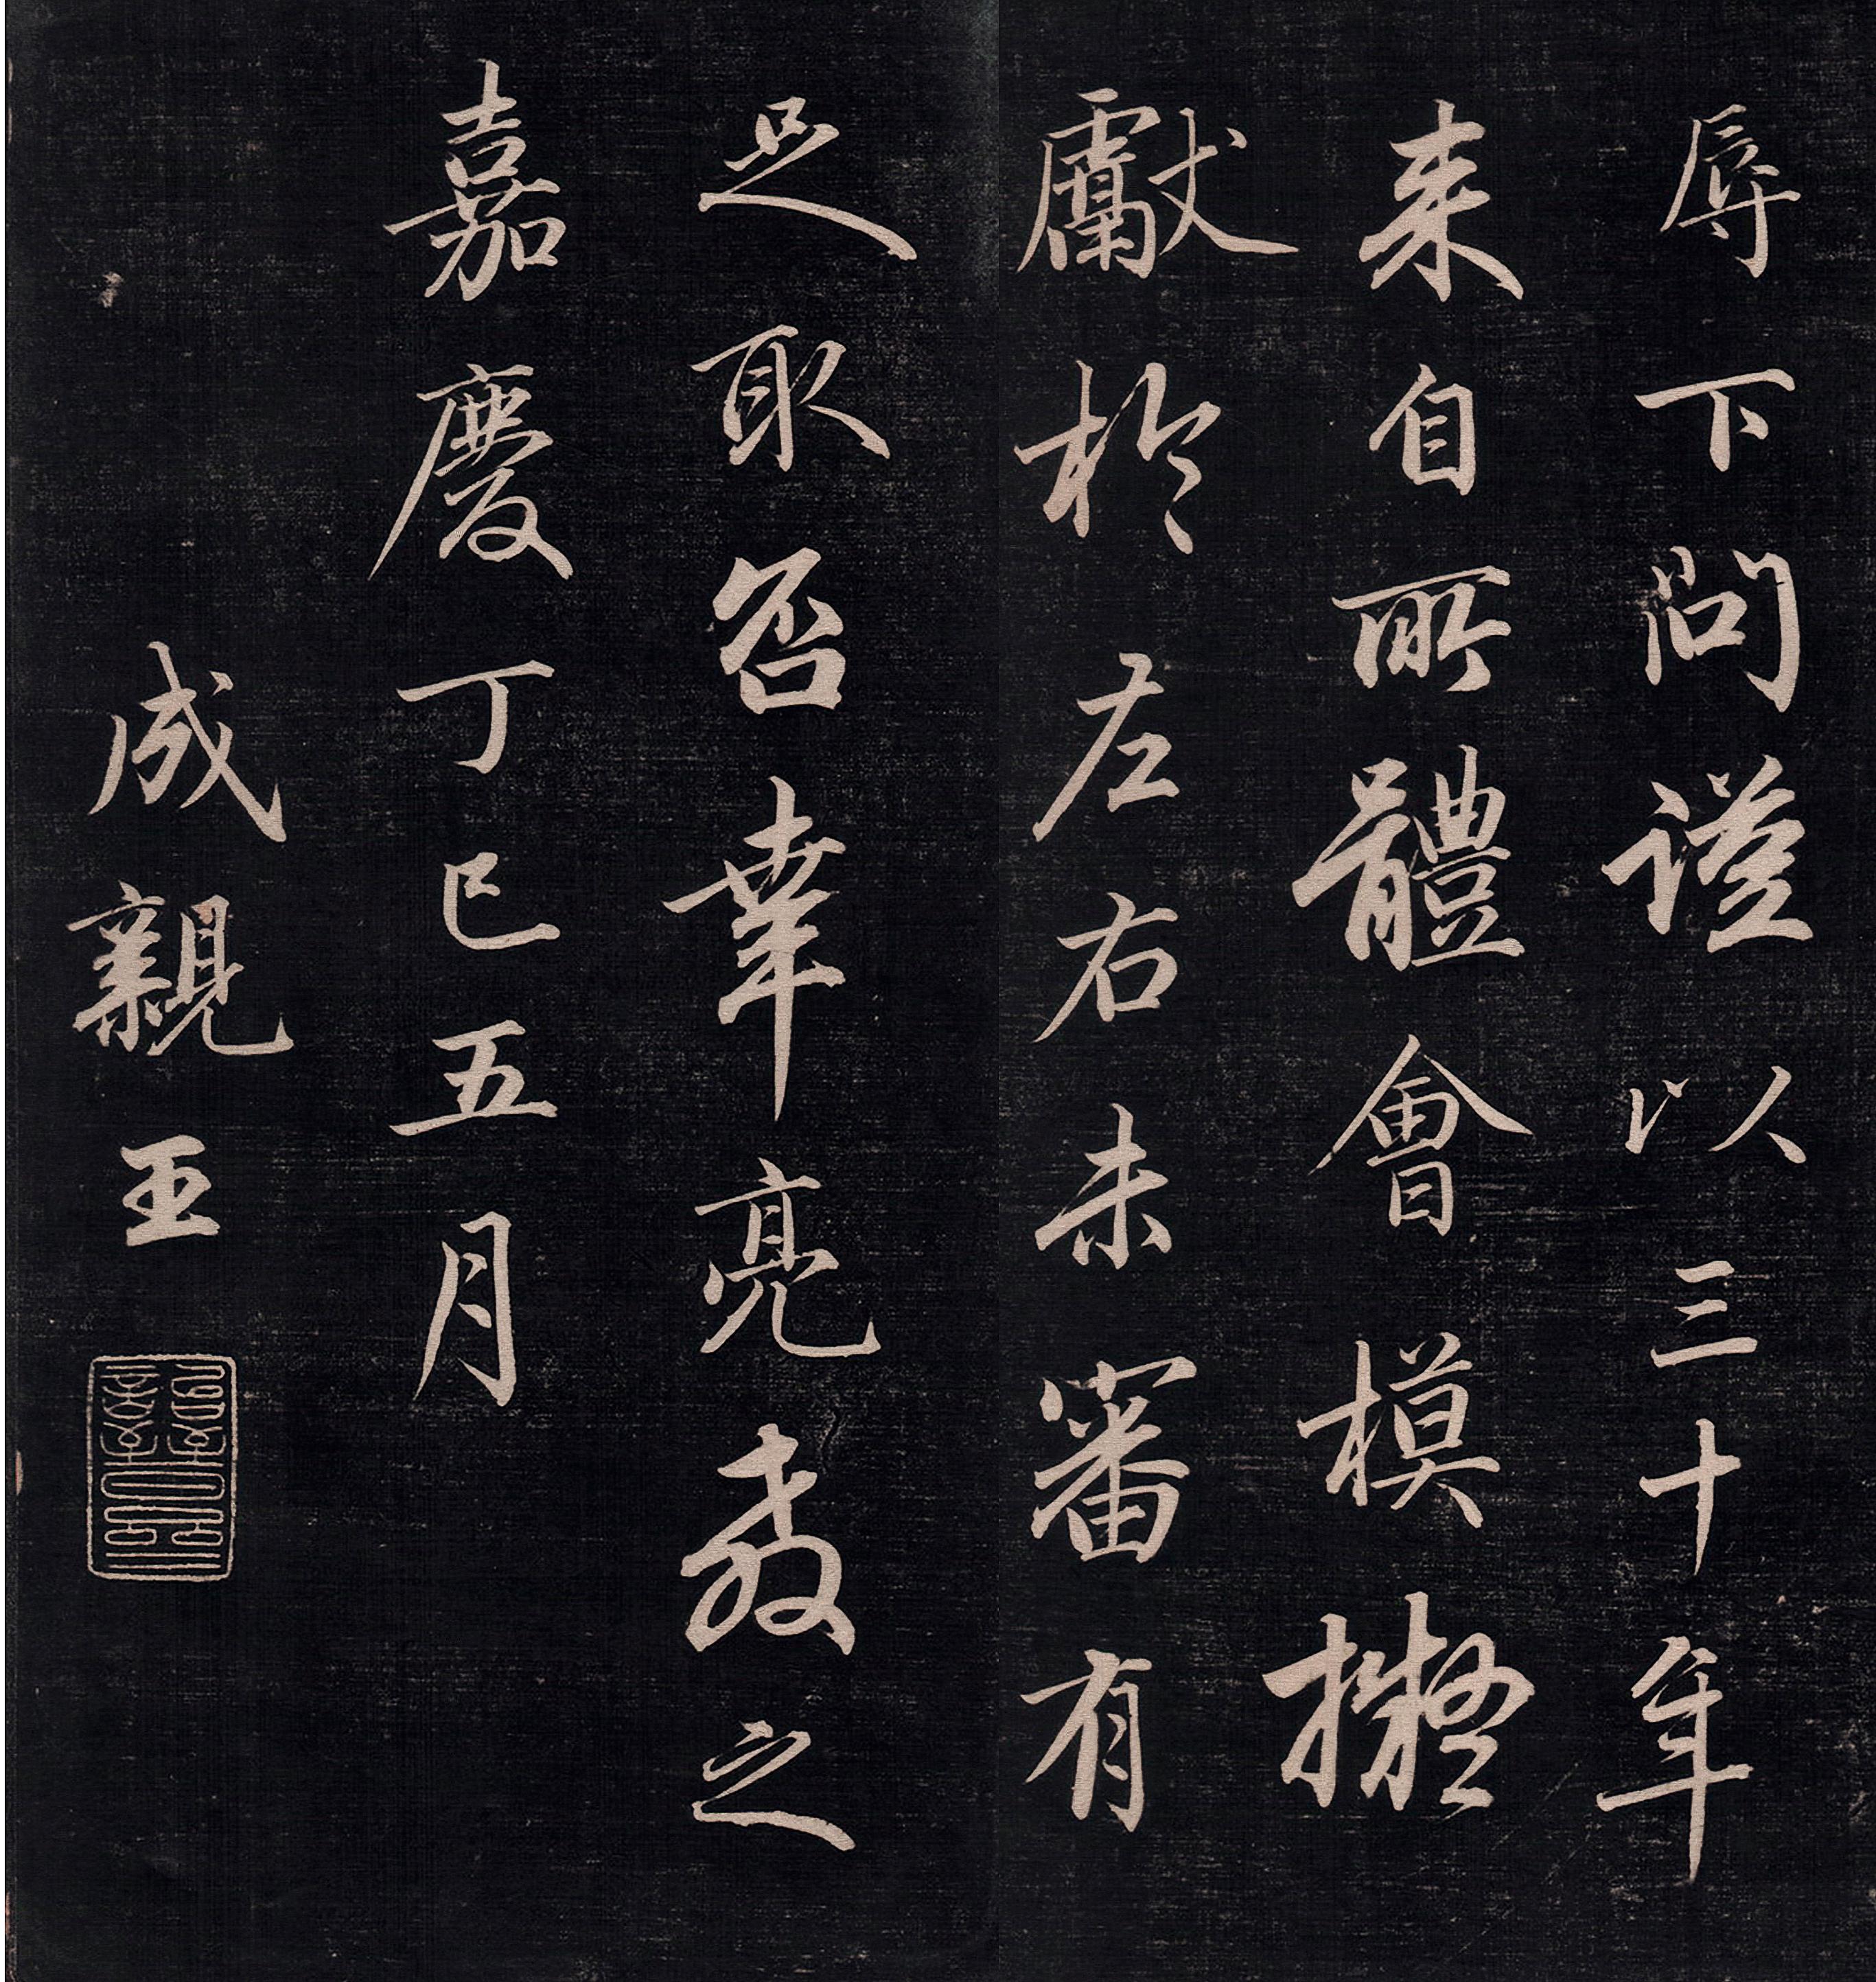 辱下問謹以三十年
来自所體會模擬
獻於左右未審有
足取否幸亮教之
嘉慶丁巳五月
成親王